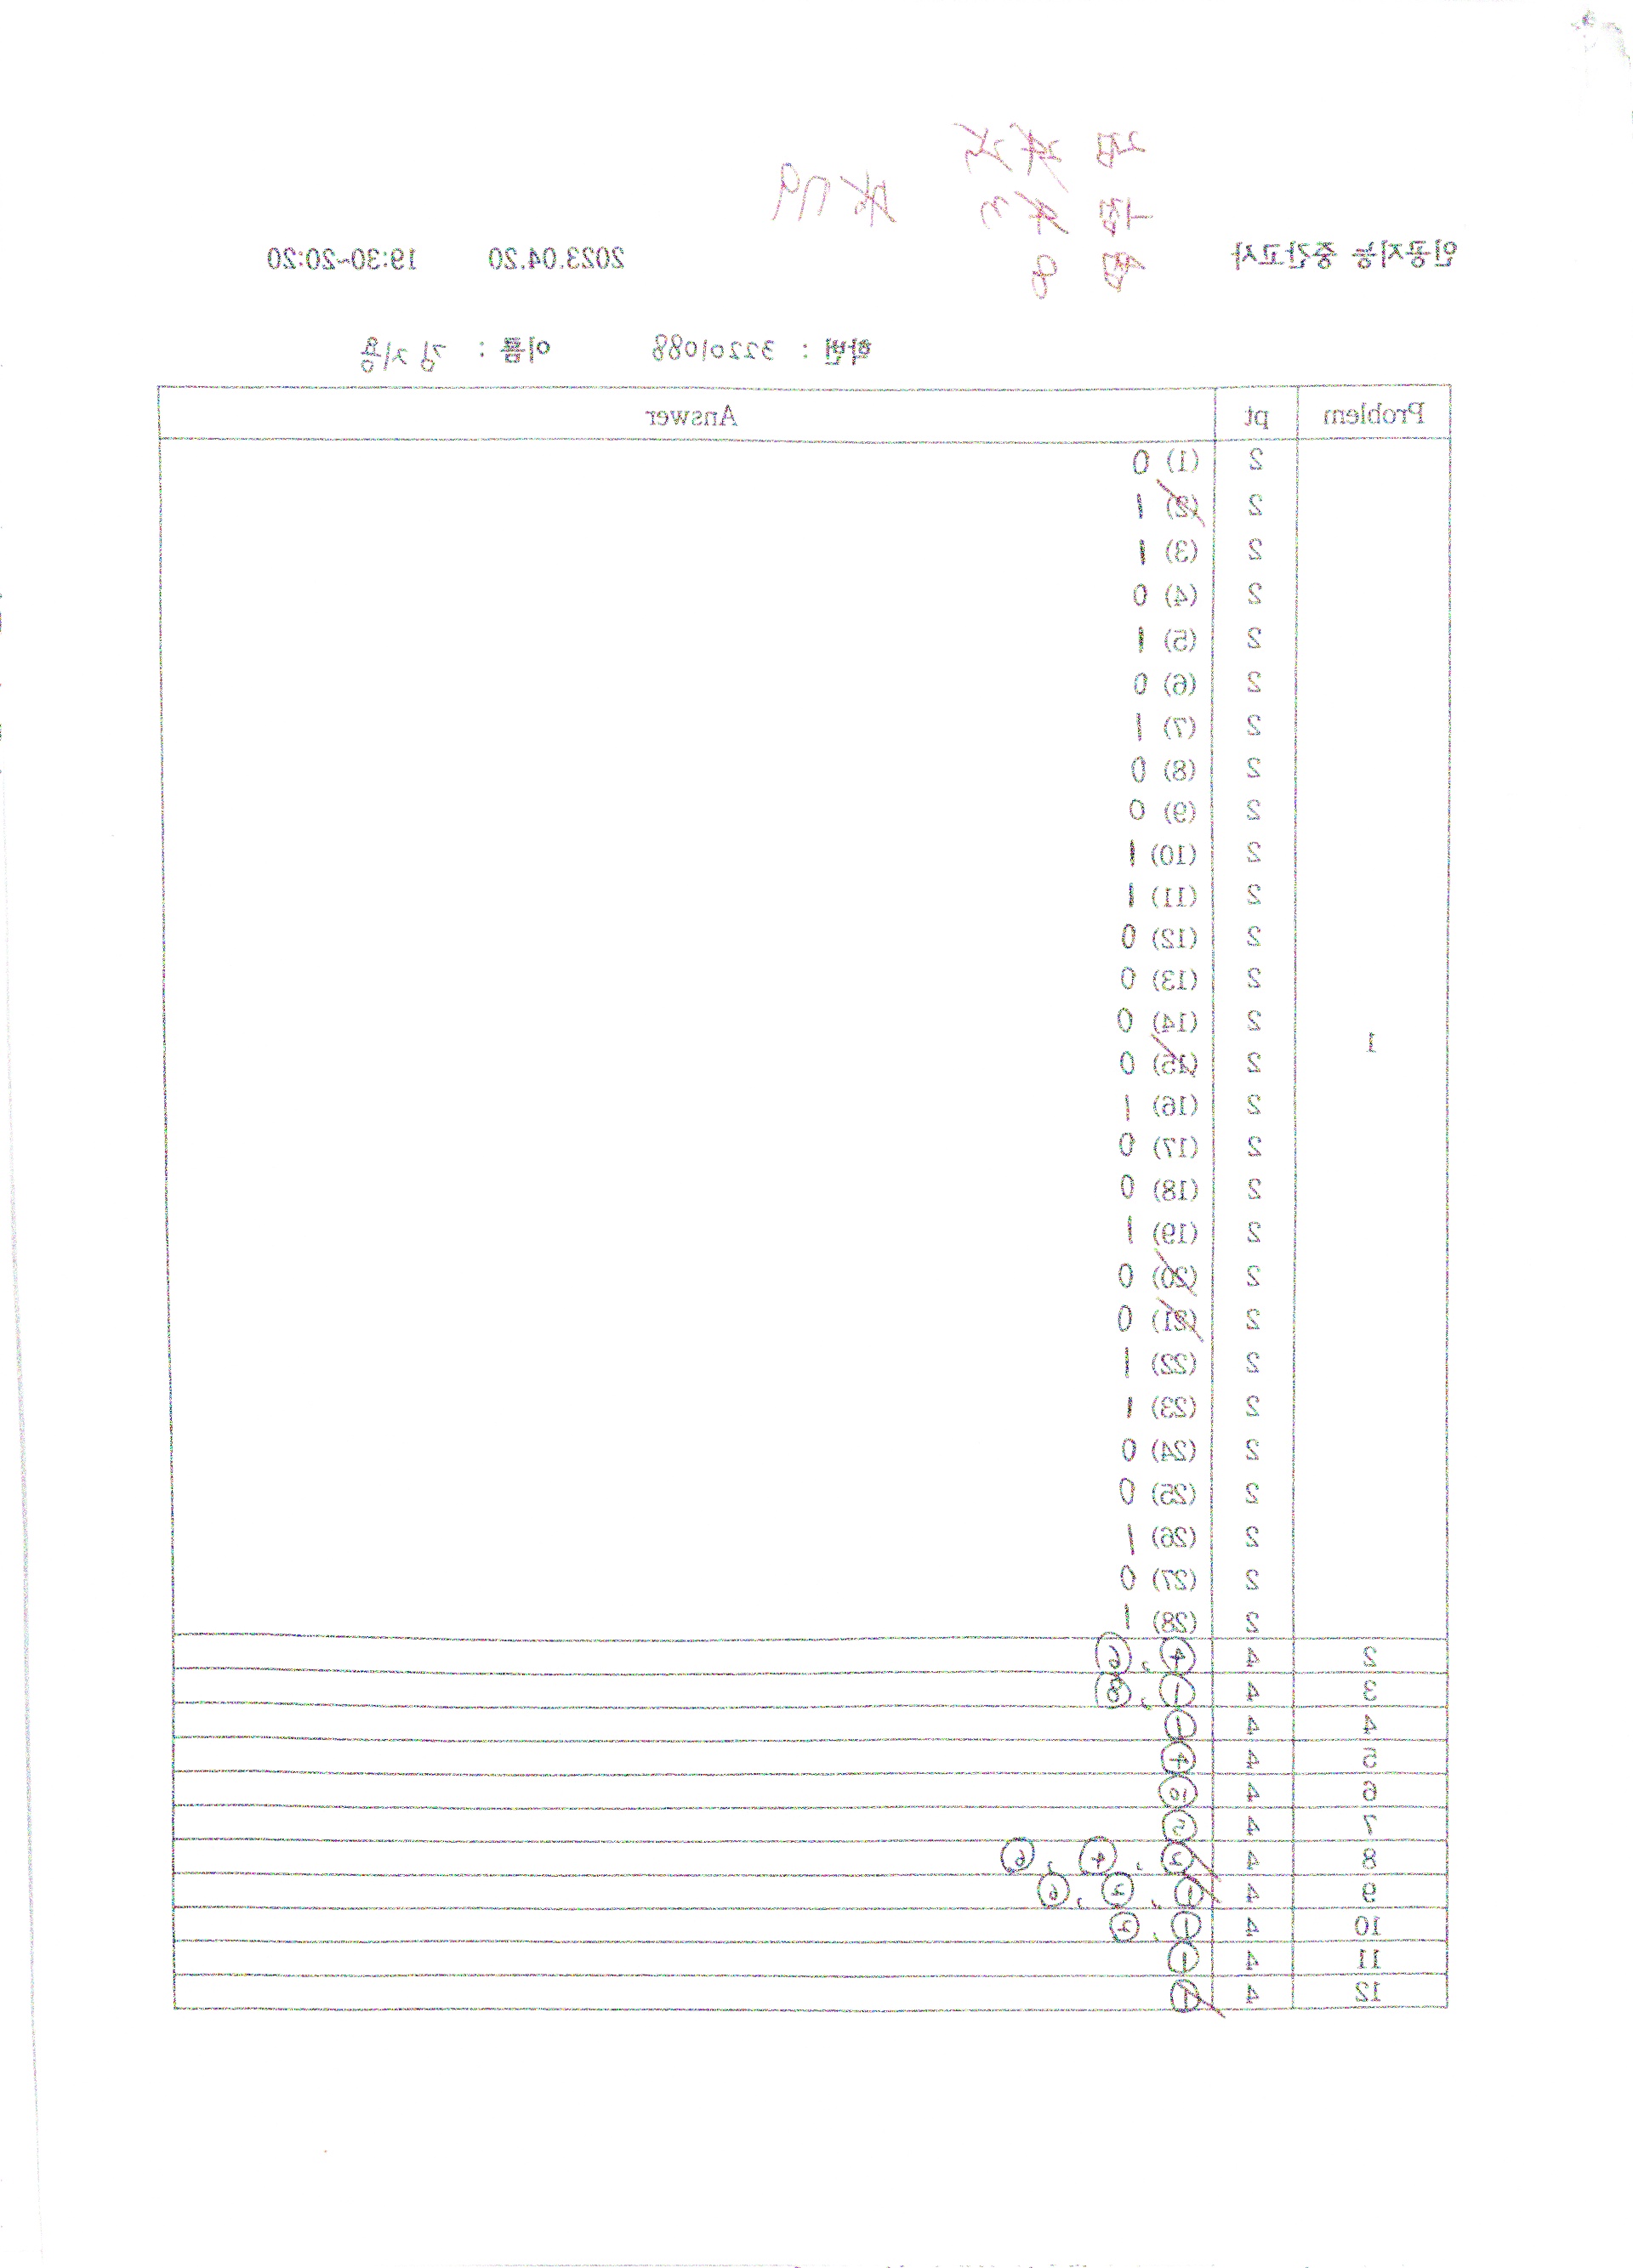 인공지능 중간고사 2023.04.20 19:30-20:20
학번 : 32201088 이름 : 강지용
Problem pt Answer
1
2 (1) 0
2 (2) 1
2 (3) 1
2 (4) 0
2 (5) 1
2 (6) 0
2 (7) 1
2 (8) 0
2 (9) 0
2 (10) 1
2 (11) 1
2 (12) 0
2 (13) 0
2 (14) 0
2 (15) 0
2 (16) 1
2 (17) 0
2 (18) 0
2 (19) 1
2 (20) 0
2 (21) 0
2 (22) 1
2 (23) 1
2 (24) 0
2 (25) 0
2 (26) 1
2 (27) 0
2 (28) 1
2 4 ④, ⑥
3 4 ①, ⑧
4 4 ①
5 4 ④
6 4 ⑩
7 4 ⑤
8 4 ②, ④, ⑥
9 4 ①, ②, ⑥
10 4 ①, ②
11 4 ①
12 4 ①